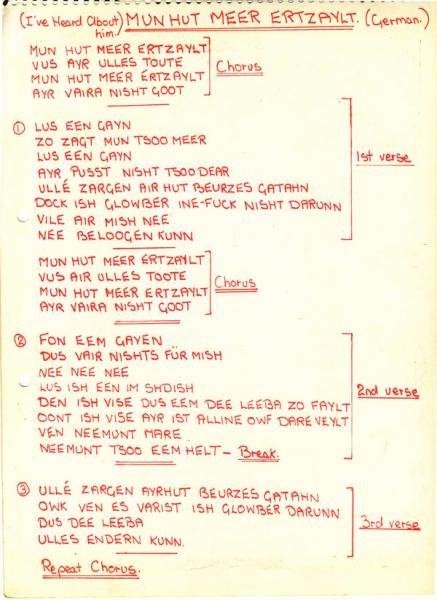 (I've Heard About him.) MUN HUT MEER ERTZAYLT. (German.)
MUN HUT MEER ERTZAYLT
VUS AYR ULLES TOUTE
MUN HUT MEER ERTZAYLT
AYR VAIRA NISHT GOOT
Chorus
① LUS EEN GAYN
ZO ZAGT MUN TSOO MEER
LUS EEN GAYN
AYR PUSST NISHT TSOO DEAR
ULLÉ ZARGEN AIR HUT BEURZES GATAHN
DOCK ISH GLOWBER INE-FUCK NISHT DARUNN
VILE AIR MISH NEE
NEE BELOOGEN KUNN
1st verse
MUN HUT MEER ERTZAYLT
VUS AIR ULLES TOOTE
MUN HUT MEER ERTZAYLT
AYR VAIRA NISHT GOOT
Chorus
② FON EEM GAYEN
DUS VAIR NISHTS FÜR MISH
NEE NEE NEE
LUS ISH EEN IM SHDISH
DEN ISH VISE DUS EEM DEE LEEBA ZO FAYLT
OONT ISH VISE AYR IST ALLINE OWF DARE VEYLT
VEN NEEMUNT MARE
NEEMUNT TSOO EEM HELT - Break.
2nd verse
③ ULLÉ ZARGEN AYRHUT BEURZES GATAHN
OWK VEN ES VARIST ISH GLOWBER DARUNN
DUS DEE LEEBA
ULLES ENDERN KUNN.
3rd verse
Repeat Chorus.